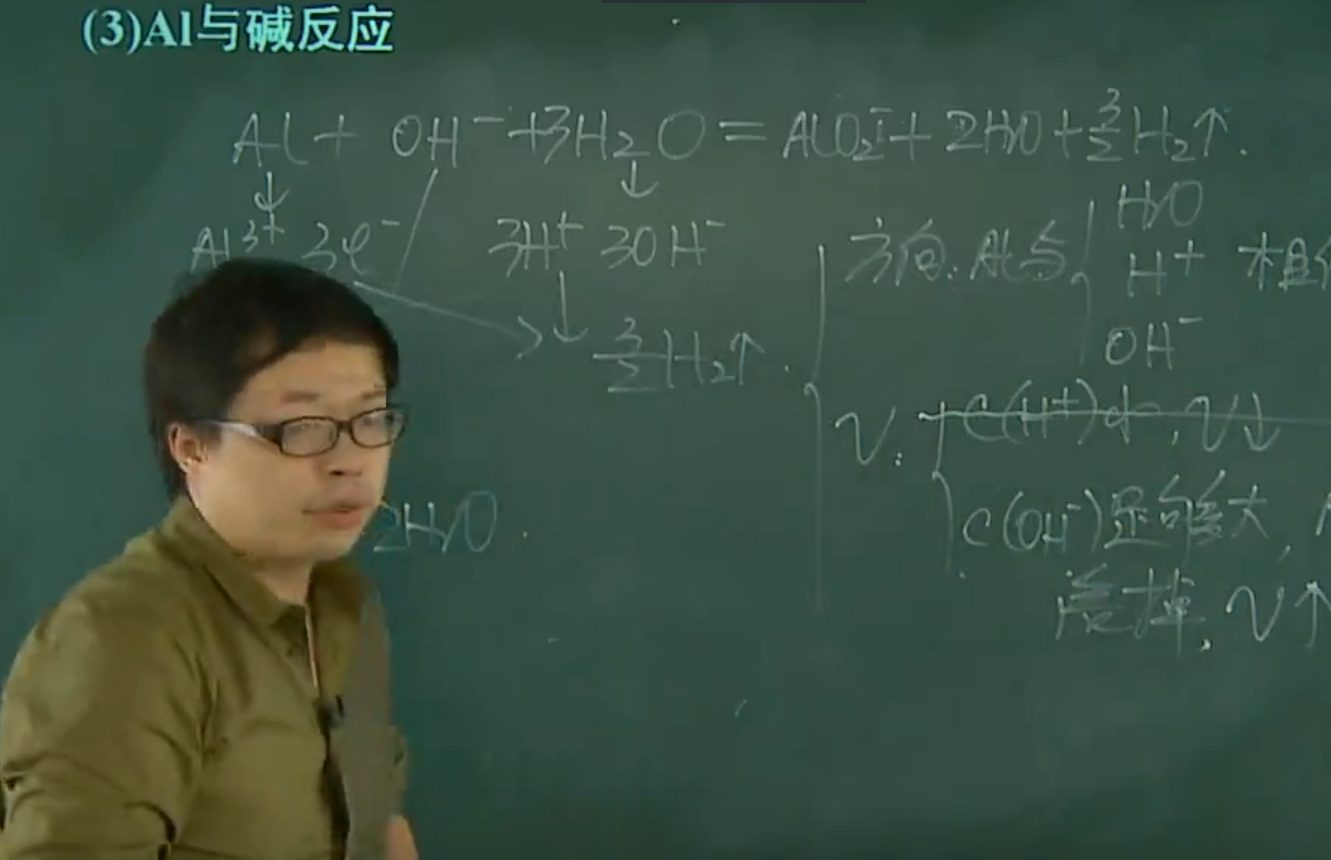 (3)Al与碱反应
Al + OH⁻ + 3H₂O = AlO₂⁻ + 2H₂O + 3/2 H₂↑.
↓ ↓
Al³⁺ 3e⁻ 3H⁺ 3OH⁻
3/2 H₂↑.
2H₂O.
方向: Al与 { H₂O
H⁺
OH⁻
V: C(H⁺)小, V↓
C(OH⁻)还够大,
掉, V↑